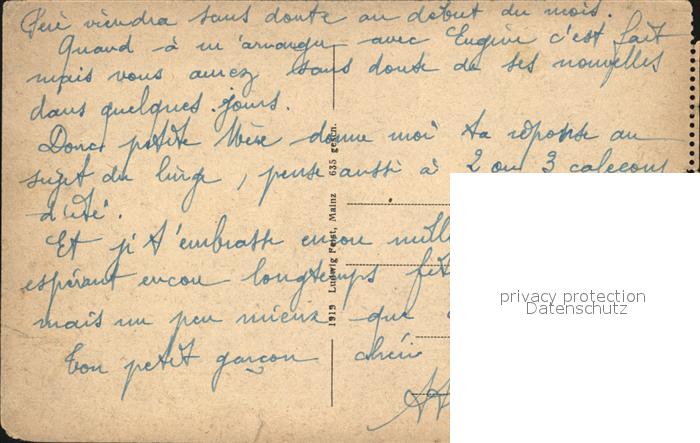 Père viendra sans doute au début du mois.
Quand à m'arranger avec Eugène c'est fait
mais vous aurez sans doute de ses nouvelles
dans quelques jours.
Donc petite Mère donne moi ta réponse au
sujet du linge, pense aussi à 2 ou 3 caleçons
d'été.
Et je t'embrasse encore mille
espérant encore longtemps fêt
mais un peu mieux que
Ton petit garçon chéri
1919 Ludwig Feist, Mainz 635 gesch.
privacy protection
Datenschutz